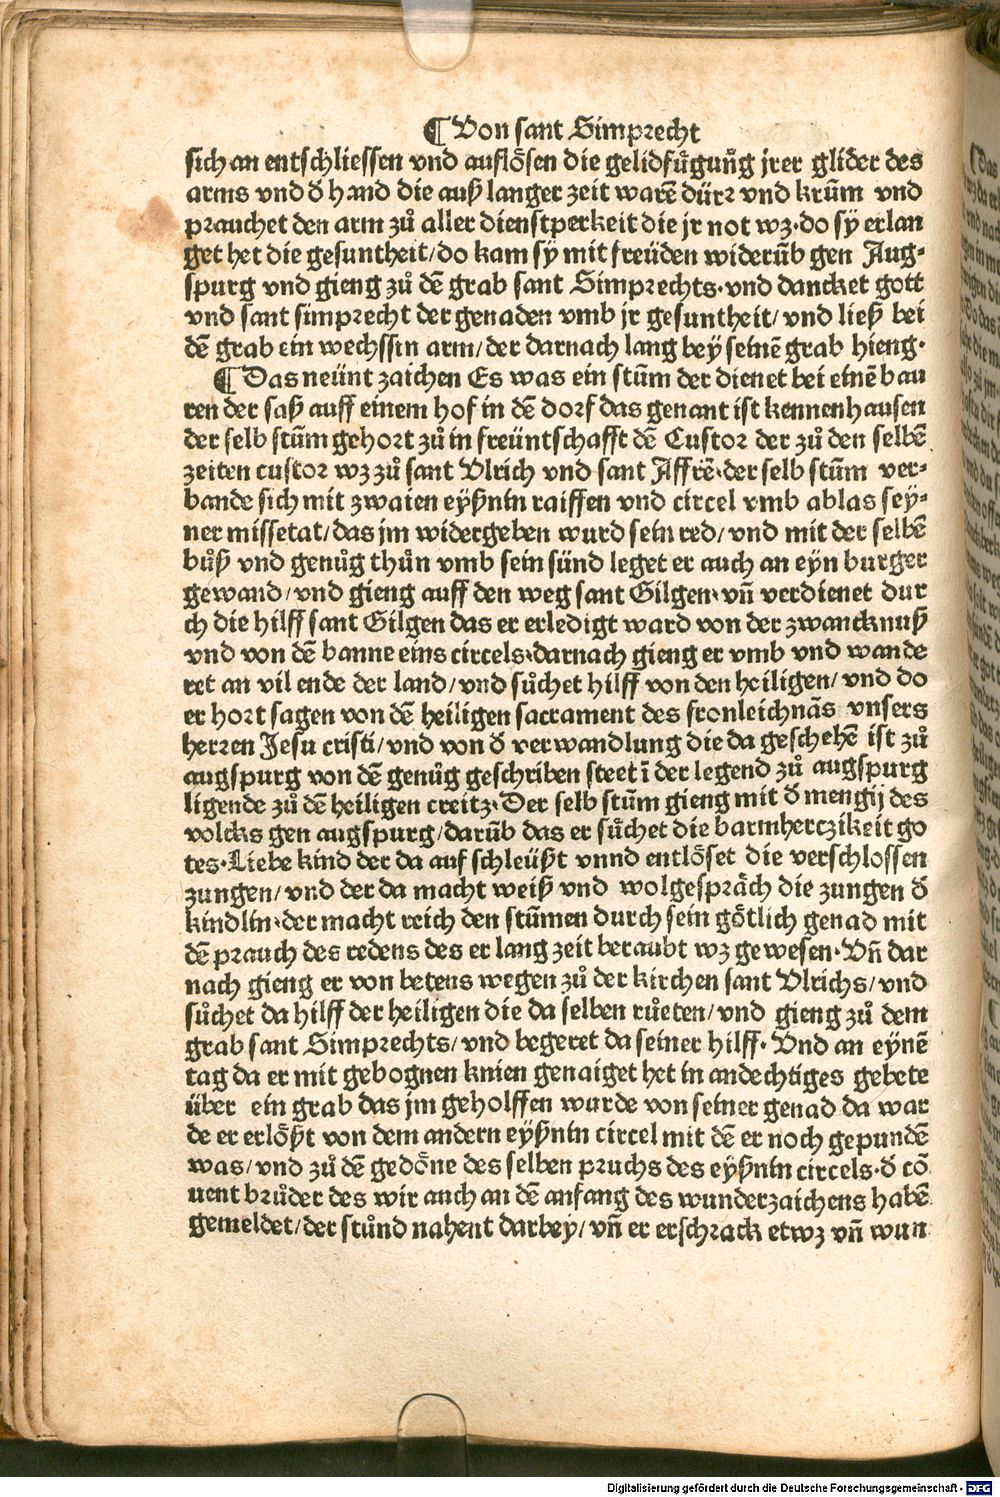 ¶ Von sant Simprecht
sich an entschliessen vnd auflo̊sen die gelidfu̇gung jrer glider des
arms vnd d̕ hand die auß langer zeit warē dürr vnd krūm vnd
prauchet den arm zů aller dienstperkeit die jr not wz·do sÿ erlan
get het die gesuntheit/do kam sÿ mit freüden widerūb gen Aug⸗
spurg vnd gieng zů dē grab sant Simprechts·vnd dancket gott
vnd sant simprecht der genaden vmb jr gesuntheit/vnd ließ bei
dē grab ein wechssin arm/der darnach lang beÿ seinē grab hieng·
¶ Das neünt zaichen Es was ein stūm der dienet bei einē bau
ren der saß auff einem hof in dē dorf das genant ist kennenhausen
der selb stūm gehort zů in freüntschafft dē Custor der zů den selbē
zeiten custor wz zů sant Vlrich vnd sant Affrē·der selb stūm ver⸗
bande sich mit zwaien eÿßnin raiffen vnd circel vmb ablas seÿ⸗
ner missetat/das jm widergeben wurd sein red/vnd mit der selbē
bůß vnd genůg thůn vmb sein sünd leget er auch an eÿn burger
gewand/vnd gieng auff den weg sant Gilgen·vn̄ verdienet dur
ch die hilff sant Gilgen das er erledigt ward von der zwancknuß
vnd von dē banne eins circels·darnach gieng er vmb vnd wande
ret an vil ende der land/vnd sůchet hilff von den heiligen/vnd do
er hort sagen von dē heiligen sacrament des fronleichnās vnsers
herren Jesu cristi/vnd von d̕ verwandlung die da geschehē ist zů
augspurg von dē genůg geschriben steet ī der legend zů augspurg
ligende zů dē heiligen creitz·Der selb stūm gieng mit d̕ mengij des
volcks gen augspurg/darūb das er sůchet die barmherczikeit go
tes·Liebe kind der da auf schleüßt vnnd entlöset die verschlossen
zungen/vnd der da macht weiß vnd wolgespräch die zungen d̕
kindlin·der macht reich den stūmen durch sein götlich genad mit
dē prauch des redens des er lang zeit beraubt wz gewesen·Vn̄ dar
nach gieng er von betens wegen zů der kirchen sant Vlrichs/vnd
sůchet da hilff der heiligen die da selben růeten/vnd gieng zů dem
grab sant Simprechts/vnd begeret da seiner hilff·Vnd an eÿnē
tag da er mit gebognen knien genaiget het in andechtiges gebete
über ein grab das jm geholffen wurde von seiner genad da war
de er erlößt von dem andern eÿßnin circel mit dē er noch gepundē
was/vnd zů dē gedöne des selben pruchs des eÿßnin circels·d̕ cō
uent brůder des wir auch an dē anfang des wunderzaichens habē
gemeldet/der stůnd nahent darbey/vn̄ er erschrack etwz vn̄ wun
Digitalisierung gefördert durch die Deutsche Forschungsgemeinschaft - DFG